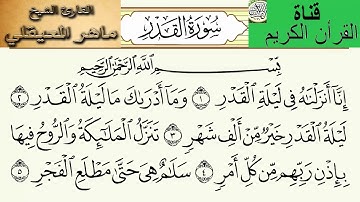 القارئ الشيخ
ماهر المعيقلي
سُورَةُ القَدْرِ
قناة
القرأن الكريم
بِسْمِ اللَّهِ الرَّحْمَٰنِ الرَّحِيمِ
إِنَّا أَنزَلْنَاهُ فِي لَيْلَةِ الْقَدْرِ ١ وَمَا أَدْرَاكَ مَا لَيْلَةُ الْقَدْرِ ٢
لَيْلَةُ الْقَدْرِ خَيْرٌ مِّنْ أَلْفِ شَهْرٍ ٣ تَنَزَّلُ الْمَلَائِكَةُ وَالرُّوحُ فِيهَا
بِإِذْنِ رَبِّهِم مِّن كُلِّ أَمْرٍ ٤ سَلَامٌ هِيَ حَتَّىٰ مَطْلَعِ الْفَجْرِ ٥